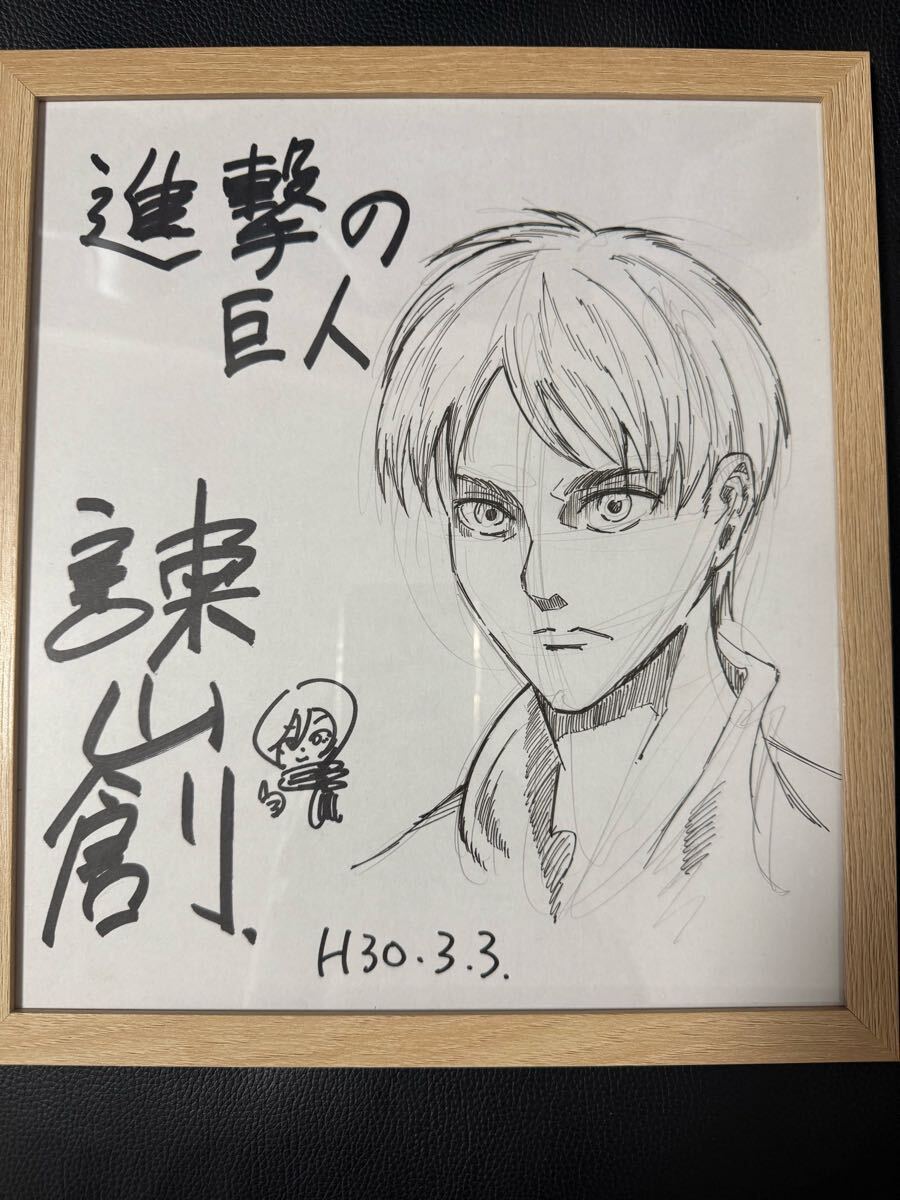 進撃の
巨人
諫山創.
H30.3.3.